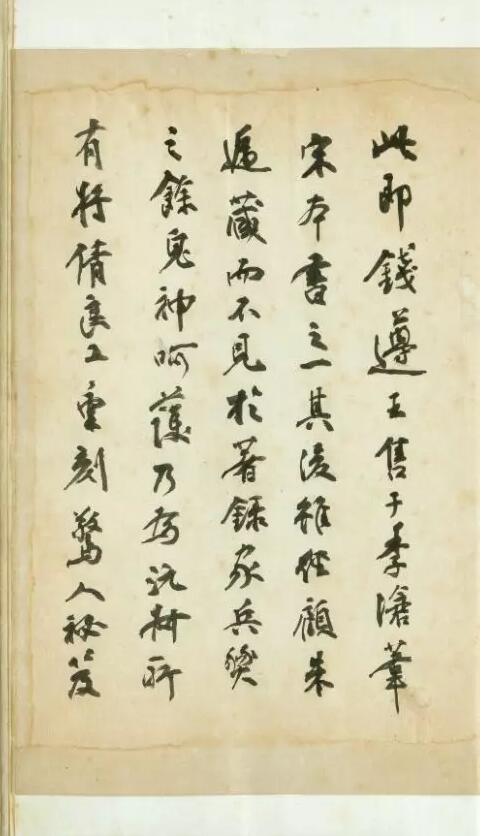 此即錢遵王售于季滄葦
宋本書之一其後雖經顧朱
遞藏而不見於著録家兵燹
之餘鬼神呵護乃為沅叔所
有將倩良工重刻驚人祕笈